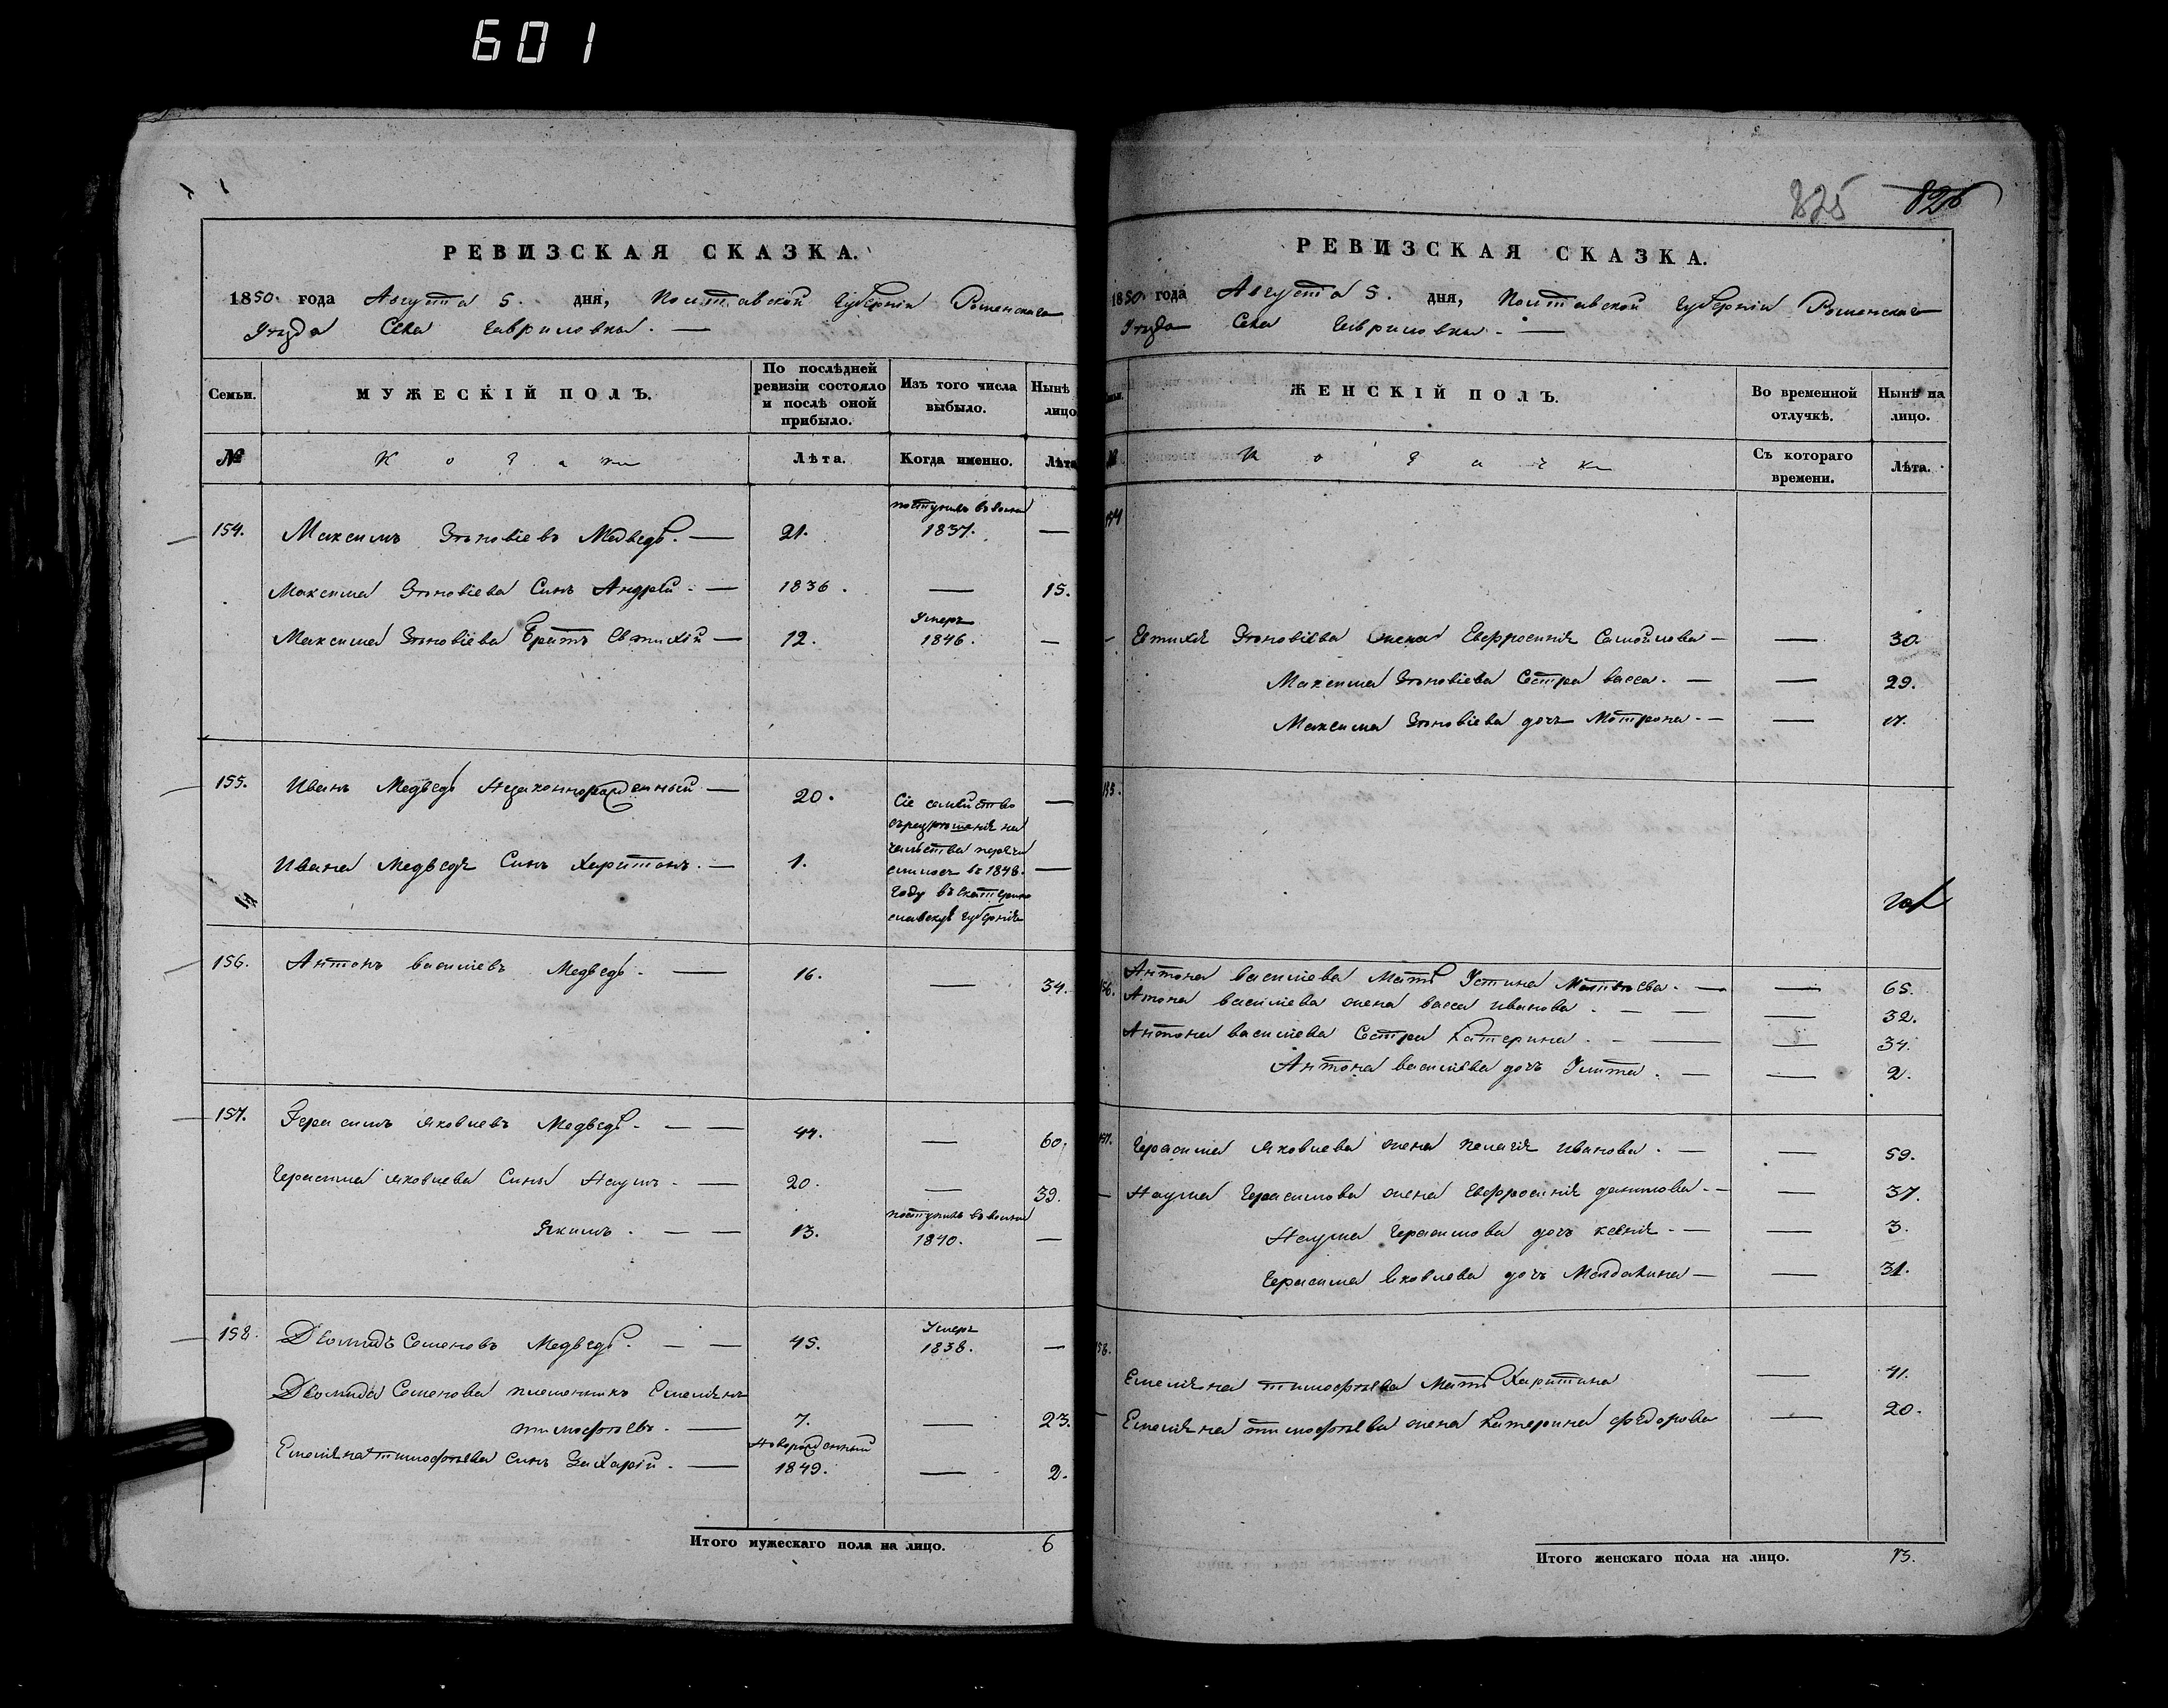 601
825 826
РЕВИЗСКАЯ СКАЗКА.
1850. года Августа 5. дня, Полтавской Губерніи Роменскаго
Уезда Села Гавриловки. —
Семьи. МУЖЕСКІЙ ПОЛЪ. По послѣдней ревизіи состояло и послѣ оной прибыло. Изъ того числа выбыло. Нынѣ лицо
№ Козаки Лѣта. Когда именно. Лѣта
154. Максимъ Зѣновіевъ Медведь. — 21. поступилъ въ воины 1837. —
Максима Зѣновіева Синъ Андрей. — 1836. — 15.
Максима Зѣновіева Братъ Евтихій — 12. Умеръ 1846. —
155. Иванъ Медведь Незаконнорожденный — 20. —
Ивана Медведя Синъ Харитонъ. — 1. —
Сіе семейство
съ разрѣшенія на
чальства перечи
слилось въ 1848.
Году въ Екатерино
славскую Губернію
156. Антонъ Василіевъ Медведь. — 16. — 34.
157. Герасимъ Яковлевъ Медведь. — — 44. — 60.
Герасима Яковлева Сины Наумъ. — 20. — 39.
Якимъ. — — 13. поступилъ въ воины 1840. —
158. Дюмидъ Семеновъ Медведь. — — 45. Умеръ 1838. —
Дюмида Семенова племенникъ Емеліянъ
тимофѣевъ. — 7. — 23.
Емеліяна тимофѣева Синъ Захарій. — Новорожденный 1849. — 2.
Итого мужескаго пола на лицо. 6
РЕВИЗСКАЯ СКАЗКА.
1850. года Августа 5. дня, Полтавской Губерніи Роменскаго
Уезда Села Гавриловки. —
ЖЕНСКІЙ ПОЛЪ. Во временной отлучкѣ. Нынѣ на лицо.
№ Козачки Съ котораго времени. Лѣта.
154
Евтихія Зѣновіева жена Евфросинія Самойлова — — 30.
Максима Зѣновіева Сестра Васса. — — 29.
Максима Зѣновіева дочь Мотрона. — — 17.
155.
156. Антона Василіева Мать Устина Матвѣева. — — 65.
Атона Василіева жена Васса Иванова. — — — 32.
Антона Василіева Сестра Катерина. — — — 34.
Антона Василіева дочь Улита. — — 2.
157. Герасима Яковлева жена Пелагія Иванова. — — 59.
— Наума Герасимова жена Евфросинія данилова. — — 37.
Наума Герасимова дочь Ксенія. — — 3.
Герасима Яковлева дочь Магдалина — — 31.
158.
Емеліяна тимофѣева Мать Харитина — 41.
— Емеліяна тимофѣева жена Катерина Федорова — 20.
Итого женскаго пола на лицо. 13.